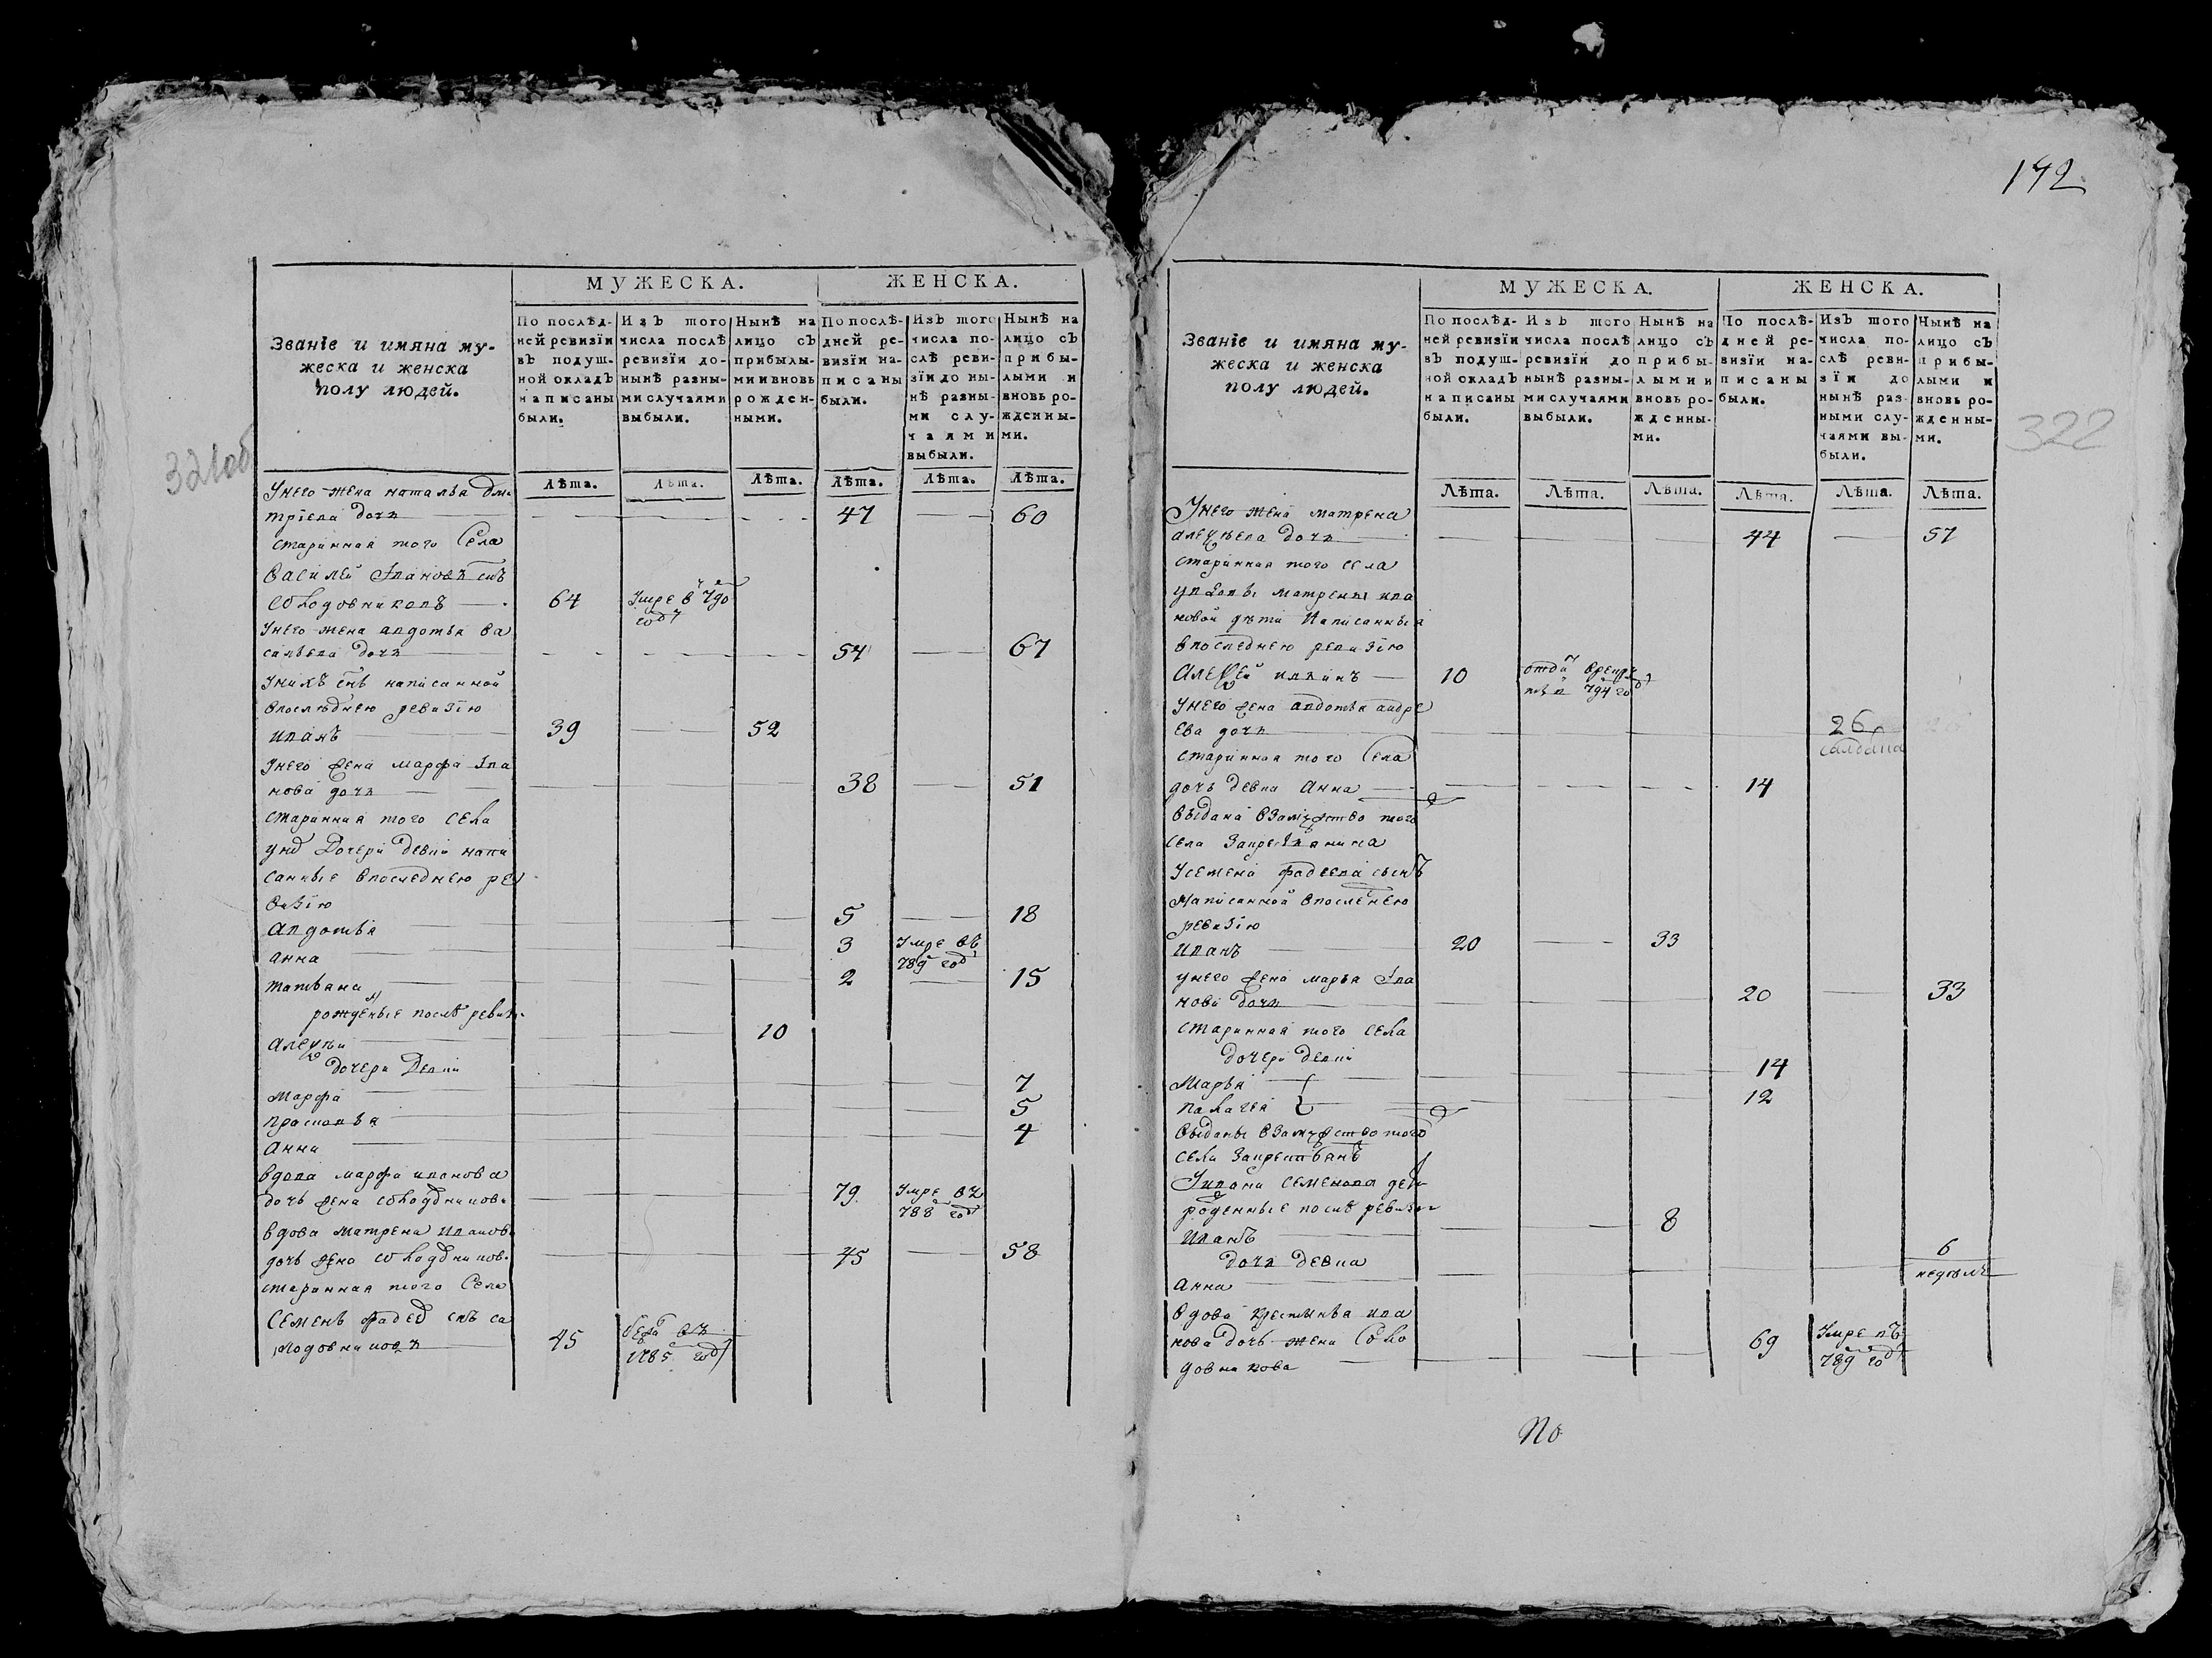 192
322
321об
МУЖЕСКА.
ЖЕНСКА.
Званїе и имяна му-
жеска и женска
полу людей.
По послѣд-
ней ревизїи
въ подуш-
ной окладъ
написаны
были.
Изъ того
числа послѣ
ревизїи до-
нынѣ разны-
ми случаями
выбыли.
Нынѣ на
лицо съ
прибылы-
ми и вновь
рожден-
ными.
По послѣ-
дней ре-
визїи на-
писаны
были.
Изъ того
числа по-
слѣ реви-
зїи до ны-
нѣ разны-
ми слу-
чаями
выбыли.
Нынѣ на
лицо съ
прибы-
лыми и
вновь ро-
жденны-
ми.
Лѣта. Лѣта. Лѣта. Лѣта. Лѣта. Лѣта.
Унего жена наталья дми
трієва дочь 47 60
старинная того села
василей Iвановъ снъ
солодовниковъ 64 Умре в 790
году
Унего жена авдотья ва
сильева дочь 54 67
Унихъ снъ написанной
впоследнею ревизїю
иванъ 39 52
Унего жена марфа Iва
нова дочь 38 51
старинная того села
унд дочери девки напи
санные впоследнею ре
визїю
авдотья 5 18
анна 3 Умре въ
789 году
татьяна 2 15
рожденые послѣ ревизи
алеѯѣи 10
дочери девки
марфа 7
прасковья 5
анна 4
вдова марфа иванова
дочь жена солодникова 79 Умре въ
788 году
вдова матрена иванова
дочь жена солодникова 45 58
старинная того села
Семенъ фадеев снъ со
лодовниковъ 45 бежа въ
1785 году
МУЖЕСКА.
ЖЕНСКА.
Званїе и имяна му-
жеска и женска
полу людей.
По послѣд-
ней ревизїи
въ подуш-
ной окладъ
написаны
были.
Изъ того
числа послѣ
ревизїи до
нынѣ разны-
ми случаями
выбыли.
Нынѣ на
лицо съ
прибы-
лыми и
вновь ро-
жденны-
ми.
По послѣ-
дней ре-
визїи на-
писаны
были.
Изъ того
числа по-
слѣ реви-
зїи до
нынѣ раз-
ными слу-
чаями вы-
были.
Нынѣ на
лицо съ
прибы-
лыми и
вновь ро-
жденны-
ми.
Лѣта. Лѣта. Лѣта. Лѣта. Лѣта. Лѣта.
Унего жена матрена
алеѯѣева дочь 44 57
старинная того села
увдовы матрены ива
новой дѣти написанныя
впоследнею ревизїю
Алеѯей ильинъ 10 отда врекру
ты в 794 году
Унего жена авдотья андре
ева дочь 26
салдатка
старинная того села
дочь девка анна 14
выдана взамужство того
села
Усемена фадеева сынъ
написанной впоследнею
ревизїю
иванъ 20 33
унего жена марья Iва
нова дочь 20 33
старинная того села
дочери девки
Марья 14
палагея 12
выданы взамужство того
села
Уивана семенова дети
роденные послѣ ревизии
иванъ 8
дочь девка 6
недѣль
анна
вдова устинья ива
нова дочь жена соло
довникова 69 Умре въ
789 году
по